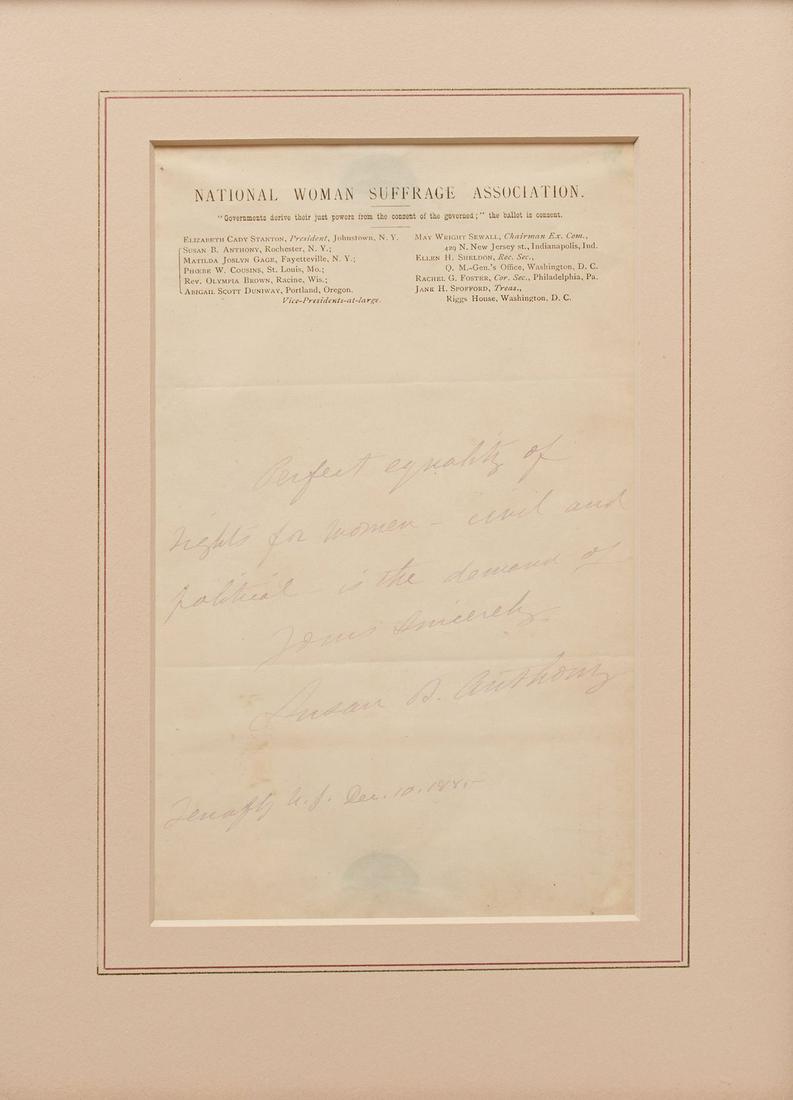 NATIONAL WOMAN SUFFRAGE ASSOCIATION.
"Governments derive their just powers from the consent of the governed;" the ballot is consent.
ELIZABETH CADY STANTON, President, Johnstown, N. Y.
SUSAN B. ANTHONY, Rochester, N. Y.;
MATILDA JOSLYN GAGE, Fayetteville, N. Y.;
PHŒBE W. COUSINS, St. Louis, Mo.;
REV. OLYMPIA BROWN, Racine, Wis.;
ABIGAIL SCOTT DUNIWAY, Portland, Oregon.
Vice-Presidents-at-large.
MAY WRIGHT SEWALL, Chairman Ex. Com.,
429 N. New Jersey st., Indianapolis, Ind.
ELLEN H. SHELDON, Rec. Sec.,
Q. M.-Gen.'s Office, Washington, D. C.
RACHEL G. FOSTER, Cor. Sec., Philadelphia, Pa.
JANE H. SPOFFORD, Treas.,
Riggs House, Washington, D. C.
Perfect equality of
rights for women - civil and
political - is the demand of
Yours Sincerely
Susan B. Anthony
Tenafly N. J. Dec. 10,